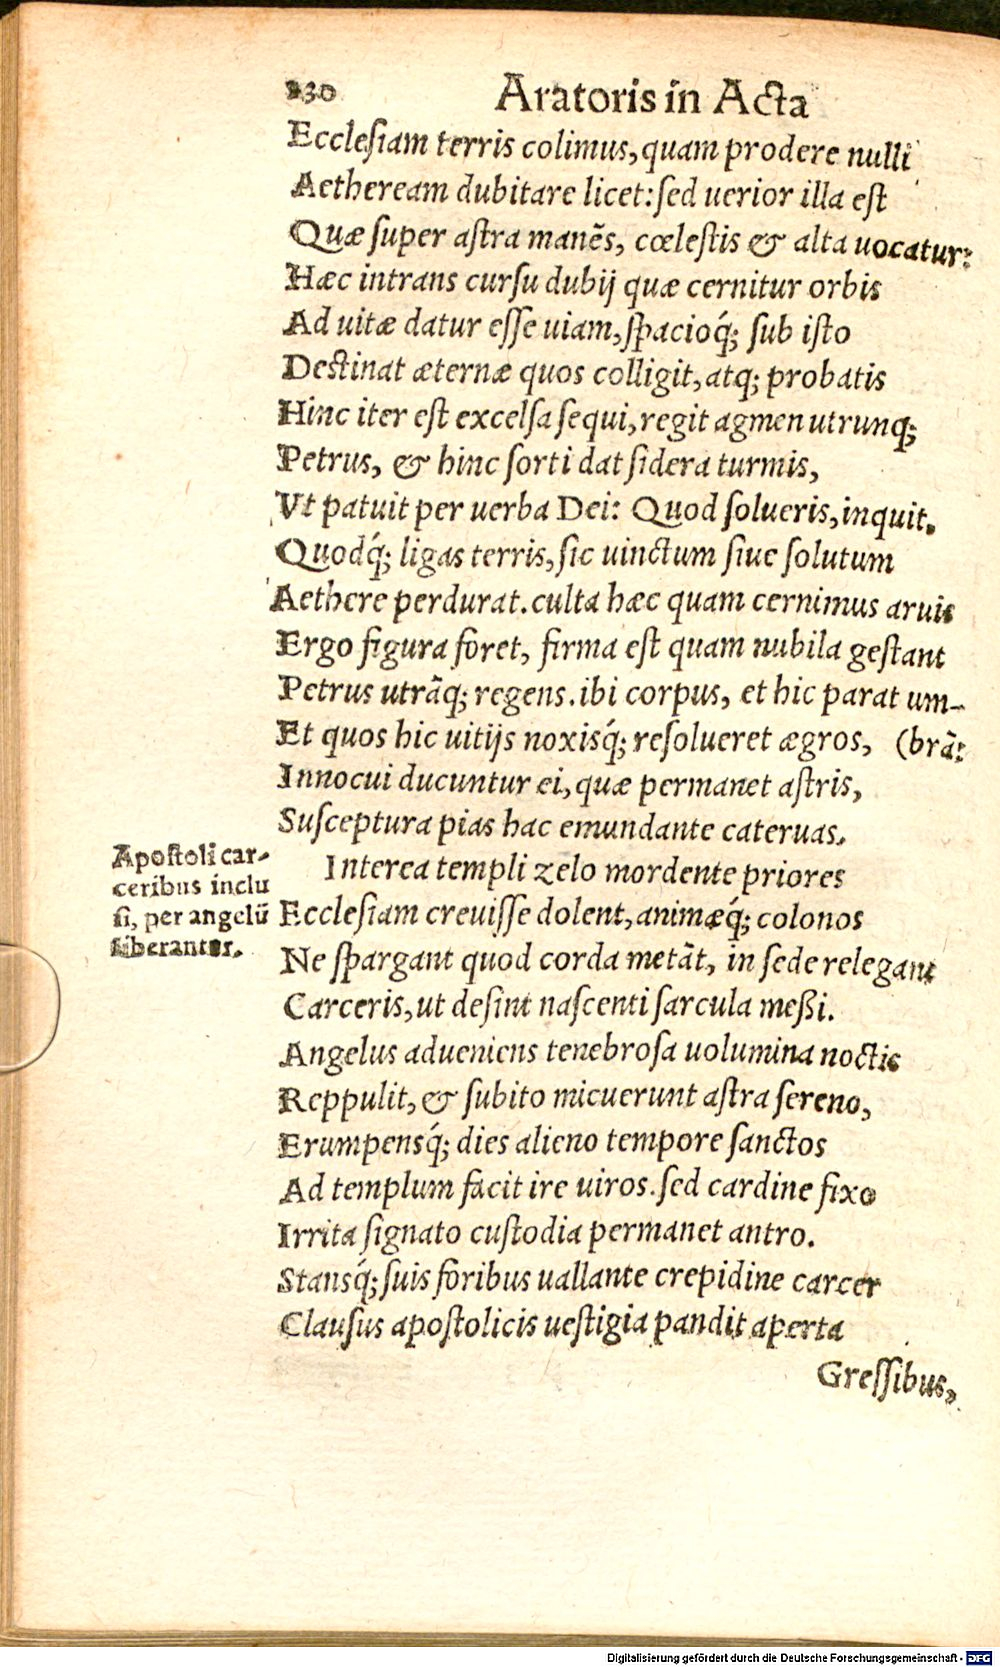 230 Aratoris in Acta
Eccleſiam terris colimus, quam prodere nulli
Aetheream dubitare licet: ſed uerior illa eſt
Quæ ſuper aſtra manẽs, cœleſtis & alta uocatur:
Hæc intrans curſu dubij quæ cernitur orbis
Ad uitæ datur eſſe uiam, ſpacioq́; ſub iſto
Deſtinat æternæ quos colligit, atq; probatis
Hinc iter eſt excelſa ſequi, regit agmen utrunq;
Petrus, & hinc ſorti dat ſidera turmis,
Vt patuit per uerba Dei: Quod ſolueris, inquit.
Quodq́; ligas terris, ſic uinctum ſiue ſolutum
Aethere perdurat. culta hæc quam cernimus aruis
Ergo figura foret, firma eſt quam nubila geſtant
Petrus utrãq; regens. ibi corpus, et hic parat um-
Et quos hic uitijs noxisq́; reſolueret ægros, (brã:
Innocui ducuntur ei, quæ permanet aſtris,
Suſceptura pias hac emundante cateruas.
Interea templi zelo mordente priores
Eccleſiam creuiſſe dolent, animæq́; colonos
Ne ſpargant quod corda metãt, in ſede relegant
Carceris, ut deſint naſcenti ſarcula meßi.
Angelus adueniens tenebroſa uolumina noctis
Reppulit, & ſubito micuerunt aſtra ſereno,
Erumpensq́; dies alieno tempore ſanctos
Ad templum facit ire uiros. ſed cardine fixo
Irrita ſignato cuſtodia permanet antro.
Stansq́; ſuis foribus uallante crepidine carcer
Clauſus apoſtolicis ueſtigia pandit aperta
Greſſibus,
Apoſtoli car-
ceribus inclu
ſi, per angelũ
liberantur.
Digitalisierung gefördert durch die Deutsche Forschungsgemeinschaft - DFG